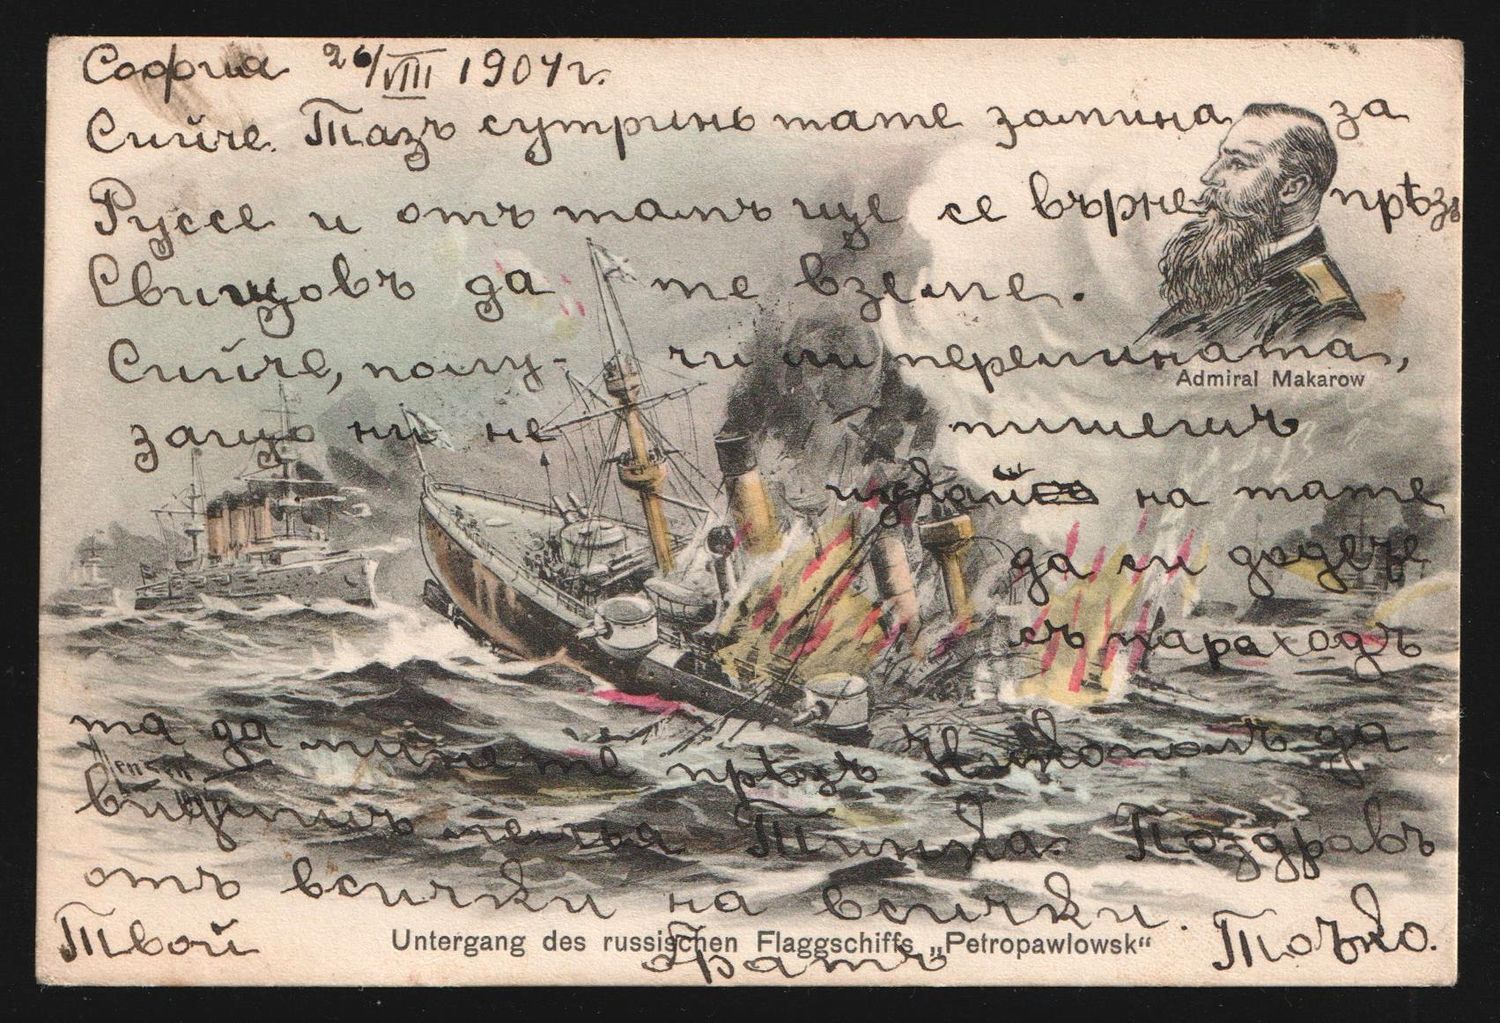 София 26/VIII 1904 г.
Сийче. Тазъ сутринь тате замина за
Руссе и отъ тамъ ще се върне прѣзъ
Свищовъ да те вземе.
Сийче, полу- чи ли перемината,
защо ни не пишешъ
на тате
да ви додече
съ параходъ
та да минете прѣзъ Никополъ да
видишъ леля Тинка. Поздравъ
отъ всички на всички.
Твой братъ Точко.
Admiral Makarow
Untergang des russischen Flaggschiffs „Petropawlowsk“